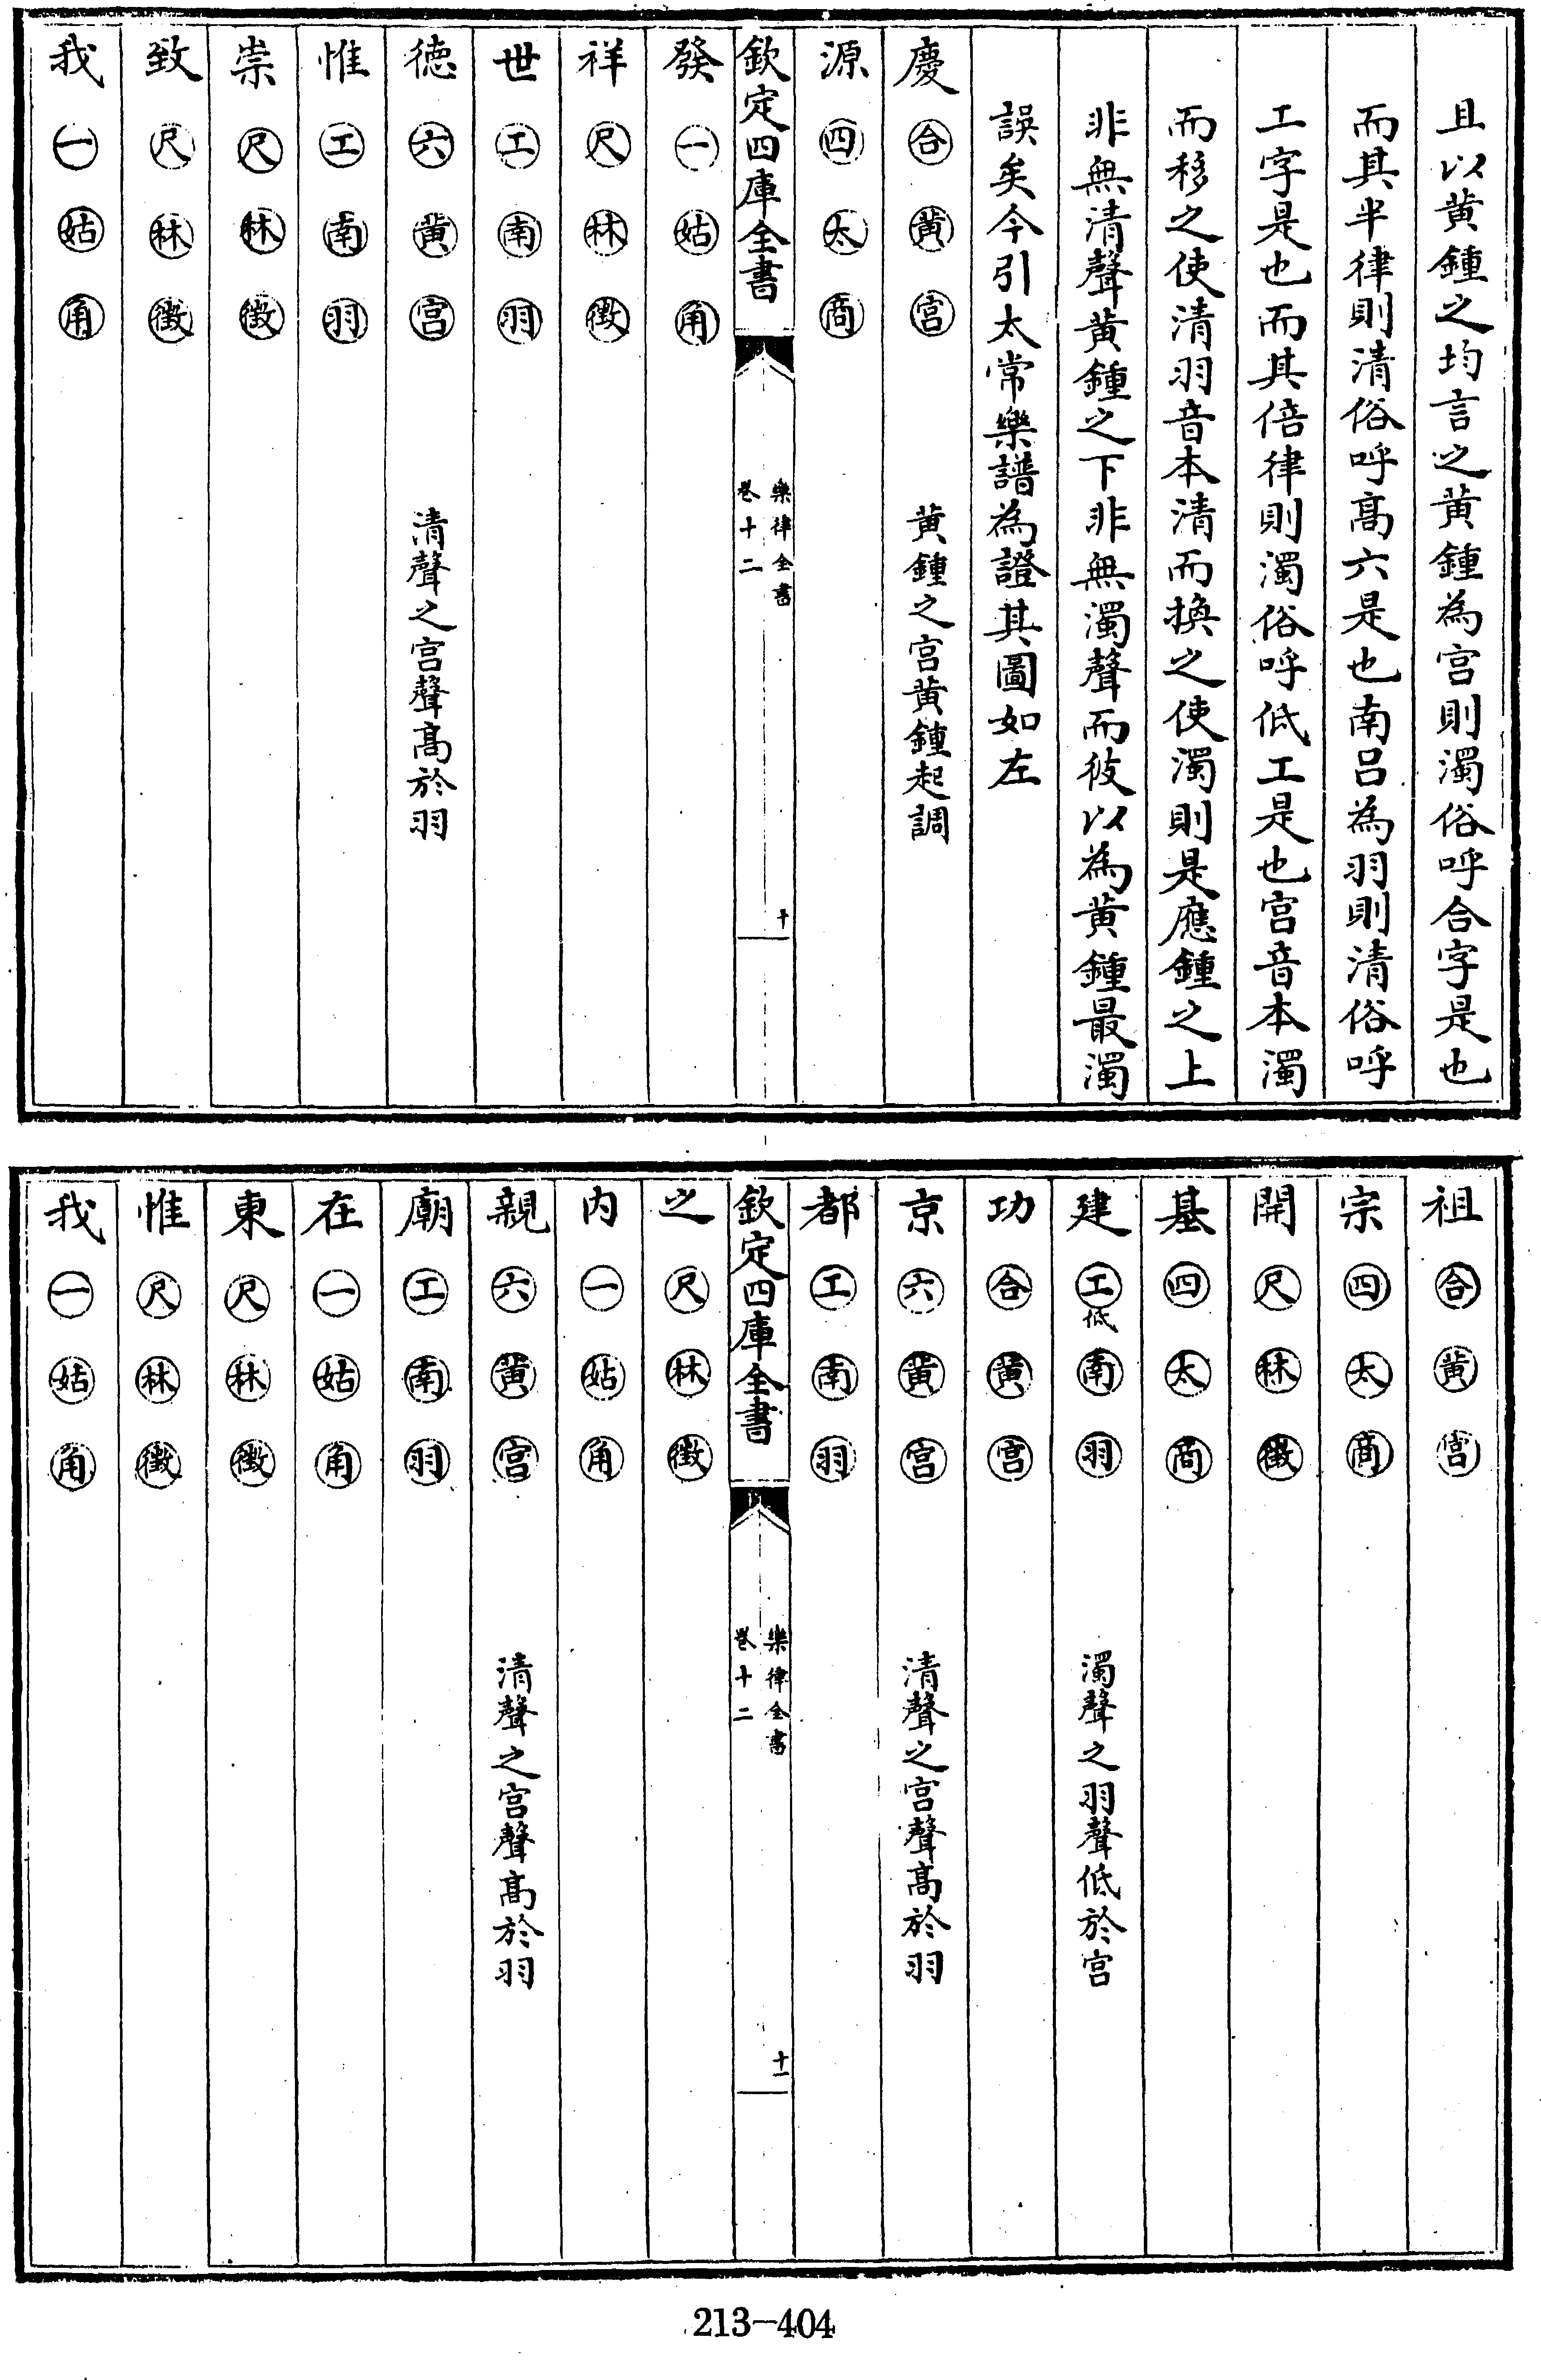 且以黄鍾之均言之黄鍾為宫則濁俗呼合字是也
而其半律則清俗呼髙六是也南吕為羽則清俗呼
工字是也而其倍律則濁俗呼低工是也宫音本濁
而移之使清羽音本清而換之使濁則是應鍾之上
非無清聲黄鍾之下非無濁聲而彼以為黄鍾最濁
誤矣今引太常樂譜為證其圖如左
慶 合 黄 宫 黄鍾之宫黄鍾起調
源 四 太 商
欽定四庫全書 樂律全書 卷十二 十
發 一 姑 角
祥 尺 林 徴
世 工 南 羽
徳 六 黄 宫 清聲之宫聲髙於羽
惟 工 南 羽
崇 尺 林 徴
致 尺 林 徴
我 一 姑 角
祖 合 黄 宫
宗 四 太 商
開 尺 林 徴
基 四 太 商
建 工低 南 羽 濁聲之羽聲低於宫
功 合 黄 宫
京 六 黄 宫 清聲之宫聲髙於羽
都 工 南 羽
欽定四庫全書 樂律全書 卷十二 十一
之 尺 林 徴
内 一 姑 角
親 六 黄 宫 清聲之宫聲髙於羽
廟 工 南 羽
在 一 姑 角
東 尺 林 徴
惟 尺 林 徴
我 一 姑 角
213-404